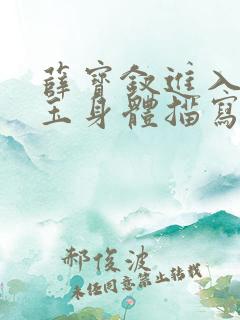 薛寶釵進入
玉身體描寫
郝俊波
未经同意禁止转载